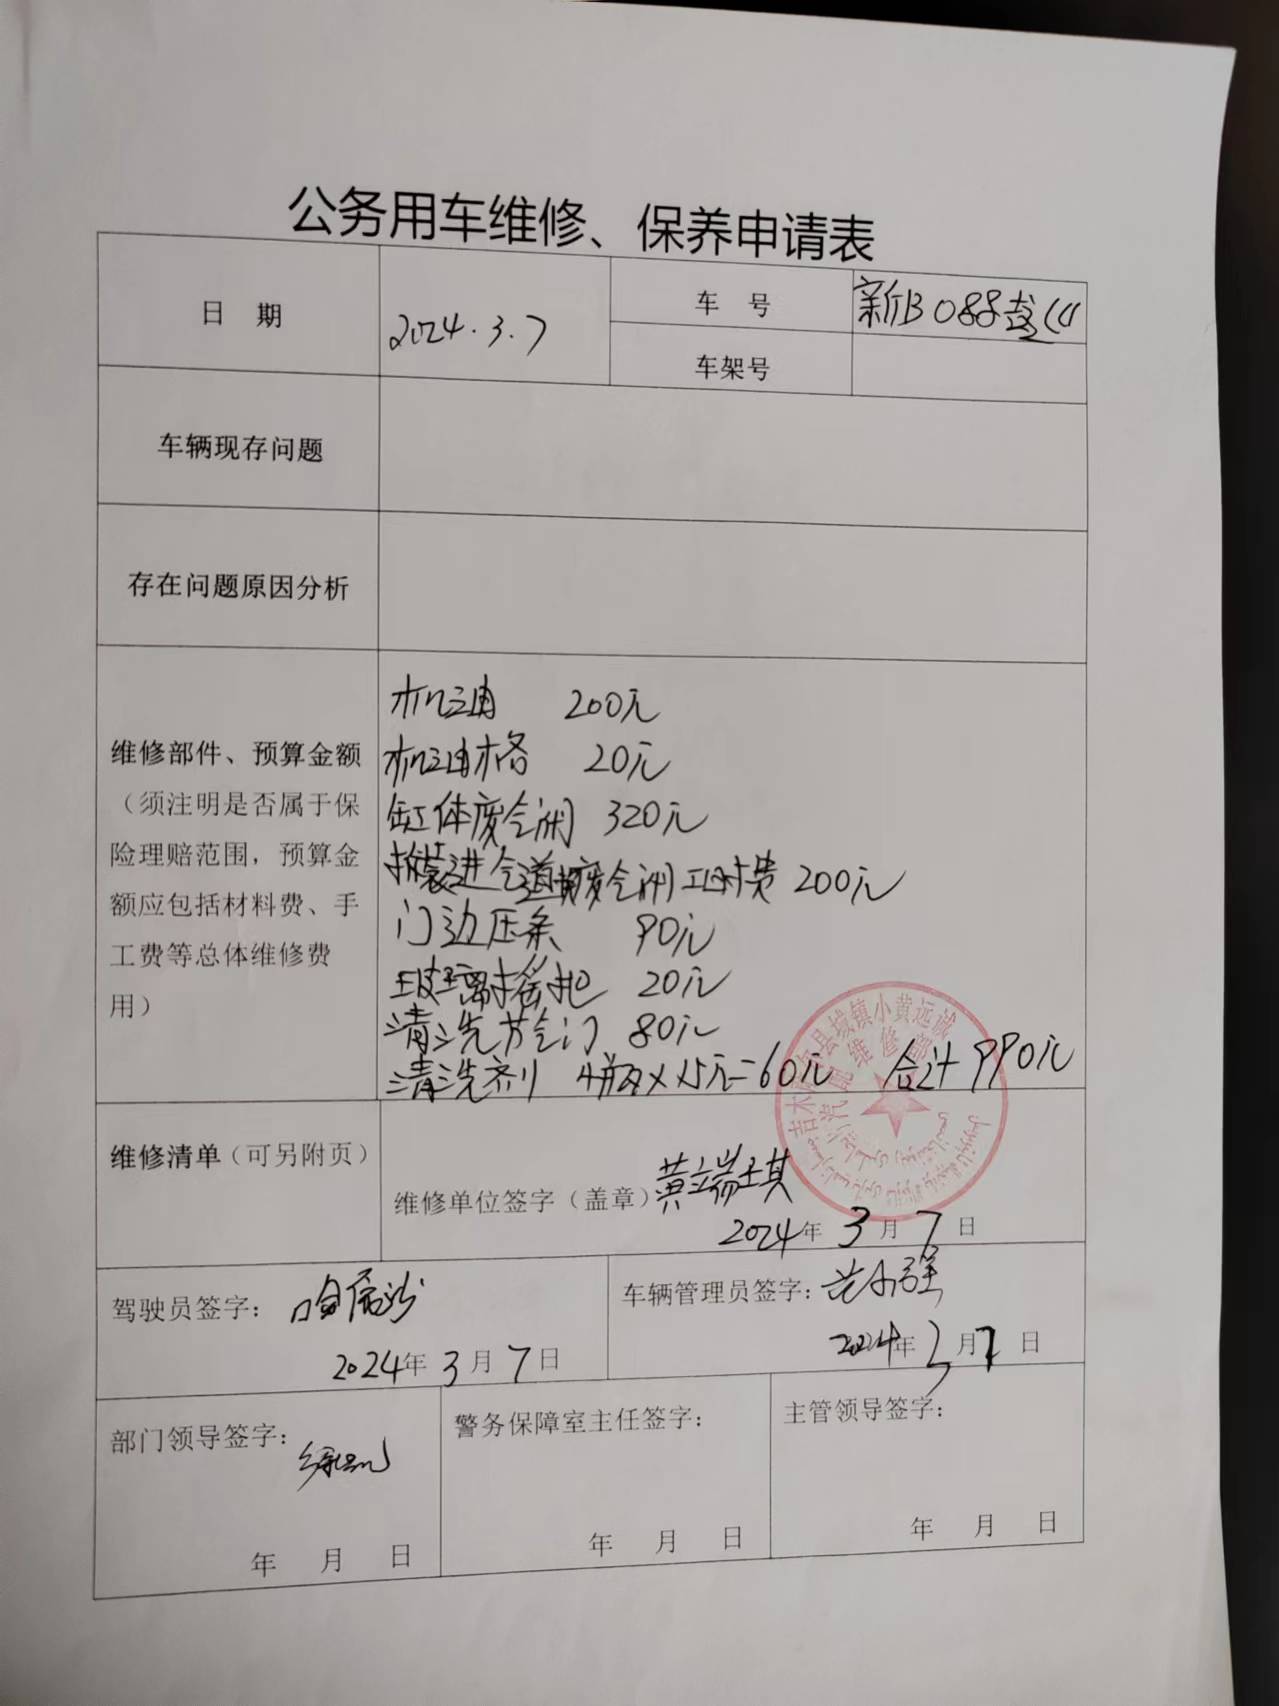 公务用车维修、保养申请表
日 期
2024.3.7
车 号
新B088
车架号
车辆现存问题
存在问题原因分析
维修部件、预算金额
（须注明是否属于保
险理赔范围，预算金
额应包括材料费、手
工费等总体维修费
用）
机油 200元
机油格 20元
缸体废气阀 320元
拆装进气道废气阀工时费 200元
门边压条 90元
玻璃摇把 20元
清洗节气门 80元
清洗剂 4瓶×15元=60元 合计990元
县域镇小黄远诚
汽配维修部
维修清单（可另附页）
维修单位签字（盖章）黄端琪
2024年3月7日
驾驶员签字：
2024年3月7日
车辆管理员签字：
2024年3月7日
部门领导签字：
年 月 日
警务保障室主任签字：
年 月 日
主管领导签字：
年 月 日